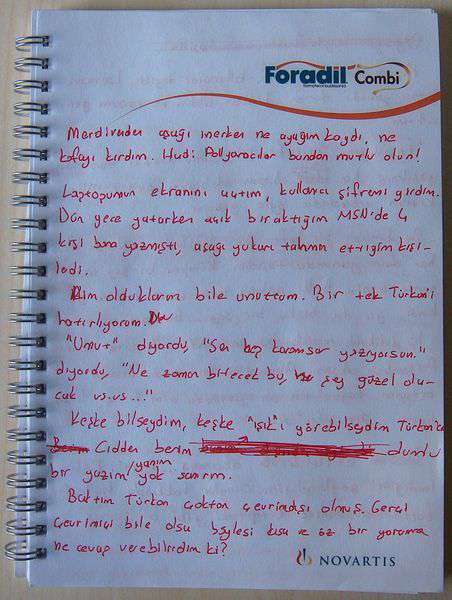 Foradil Combi
Merdivenden aşağı inerken ne ayağım kaydı, ne
kafayı kırdım. Hadi Pollyannacılar bundan mutlu olun!
Laptopumun ekranını açtım, kullanıcı şifremi girdim.
Dün gece yatarken açık bıraktığım MSN'de 4
kişi bana yazmıştı, aşağı yukarı tahmin ettiğim kişi-
lerdi.
Kim olduklarını bile unuttum. Bir tek Türkan'ı
hatırlıyorum.
"Umut" diyordu, "Sen hep karamsar yazıyorsun."
diyordu, "Ne zaman bitecek bu, şey güzel ola-
cak vs.vs..."
Keşke bilseydim, keşke "ışık"ı görebilseydim Türkan'cım
Cidden benim umudu
bir yazım/yanım yok sanırım.
Baktım Türkan çoktan çevrimdışı olmuş. Gerçi
çevrimiçi bile olsa böylesi kısa ve öz bir yoruma
ne cevap verebilirdim ki?
NOVARTIS